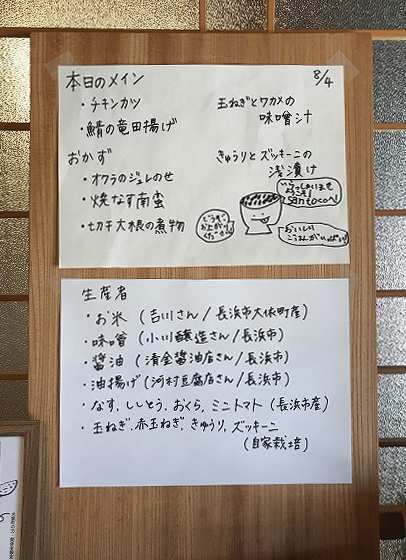 本日のメイン
8/4
・チキンカツ
・鯖の竜田揚げ
玉ねぎとワカメの
味噌汁
おかず
・オクラのジュレのせ
・焼なす南蛮
・切干大根の煮物
きゅうりとズッキーニの
浅漬け
いらっしゃいませ
ようこそ!
santocoへ
どうぞ
お上がり
ください
おいしい
ごはんがいっぱい
生産者
・お米(吉川さん/長浜市大依町産)
・味噌(小川醸造さん/長浜市)
・醤油(清金醤油店さん/長浜市)
・油揚げ(河村豆腐店さん/長浜市)
・なす,ししとう,おくら,ミニトマト(長浜市産)
・玉ねぎ,赤玉ねぎ,きゅうり,ズッキーニ
(自家栽培)